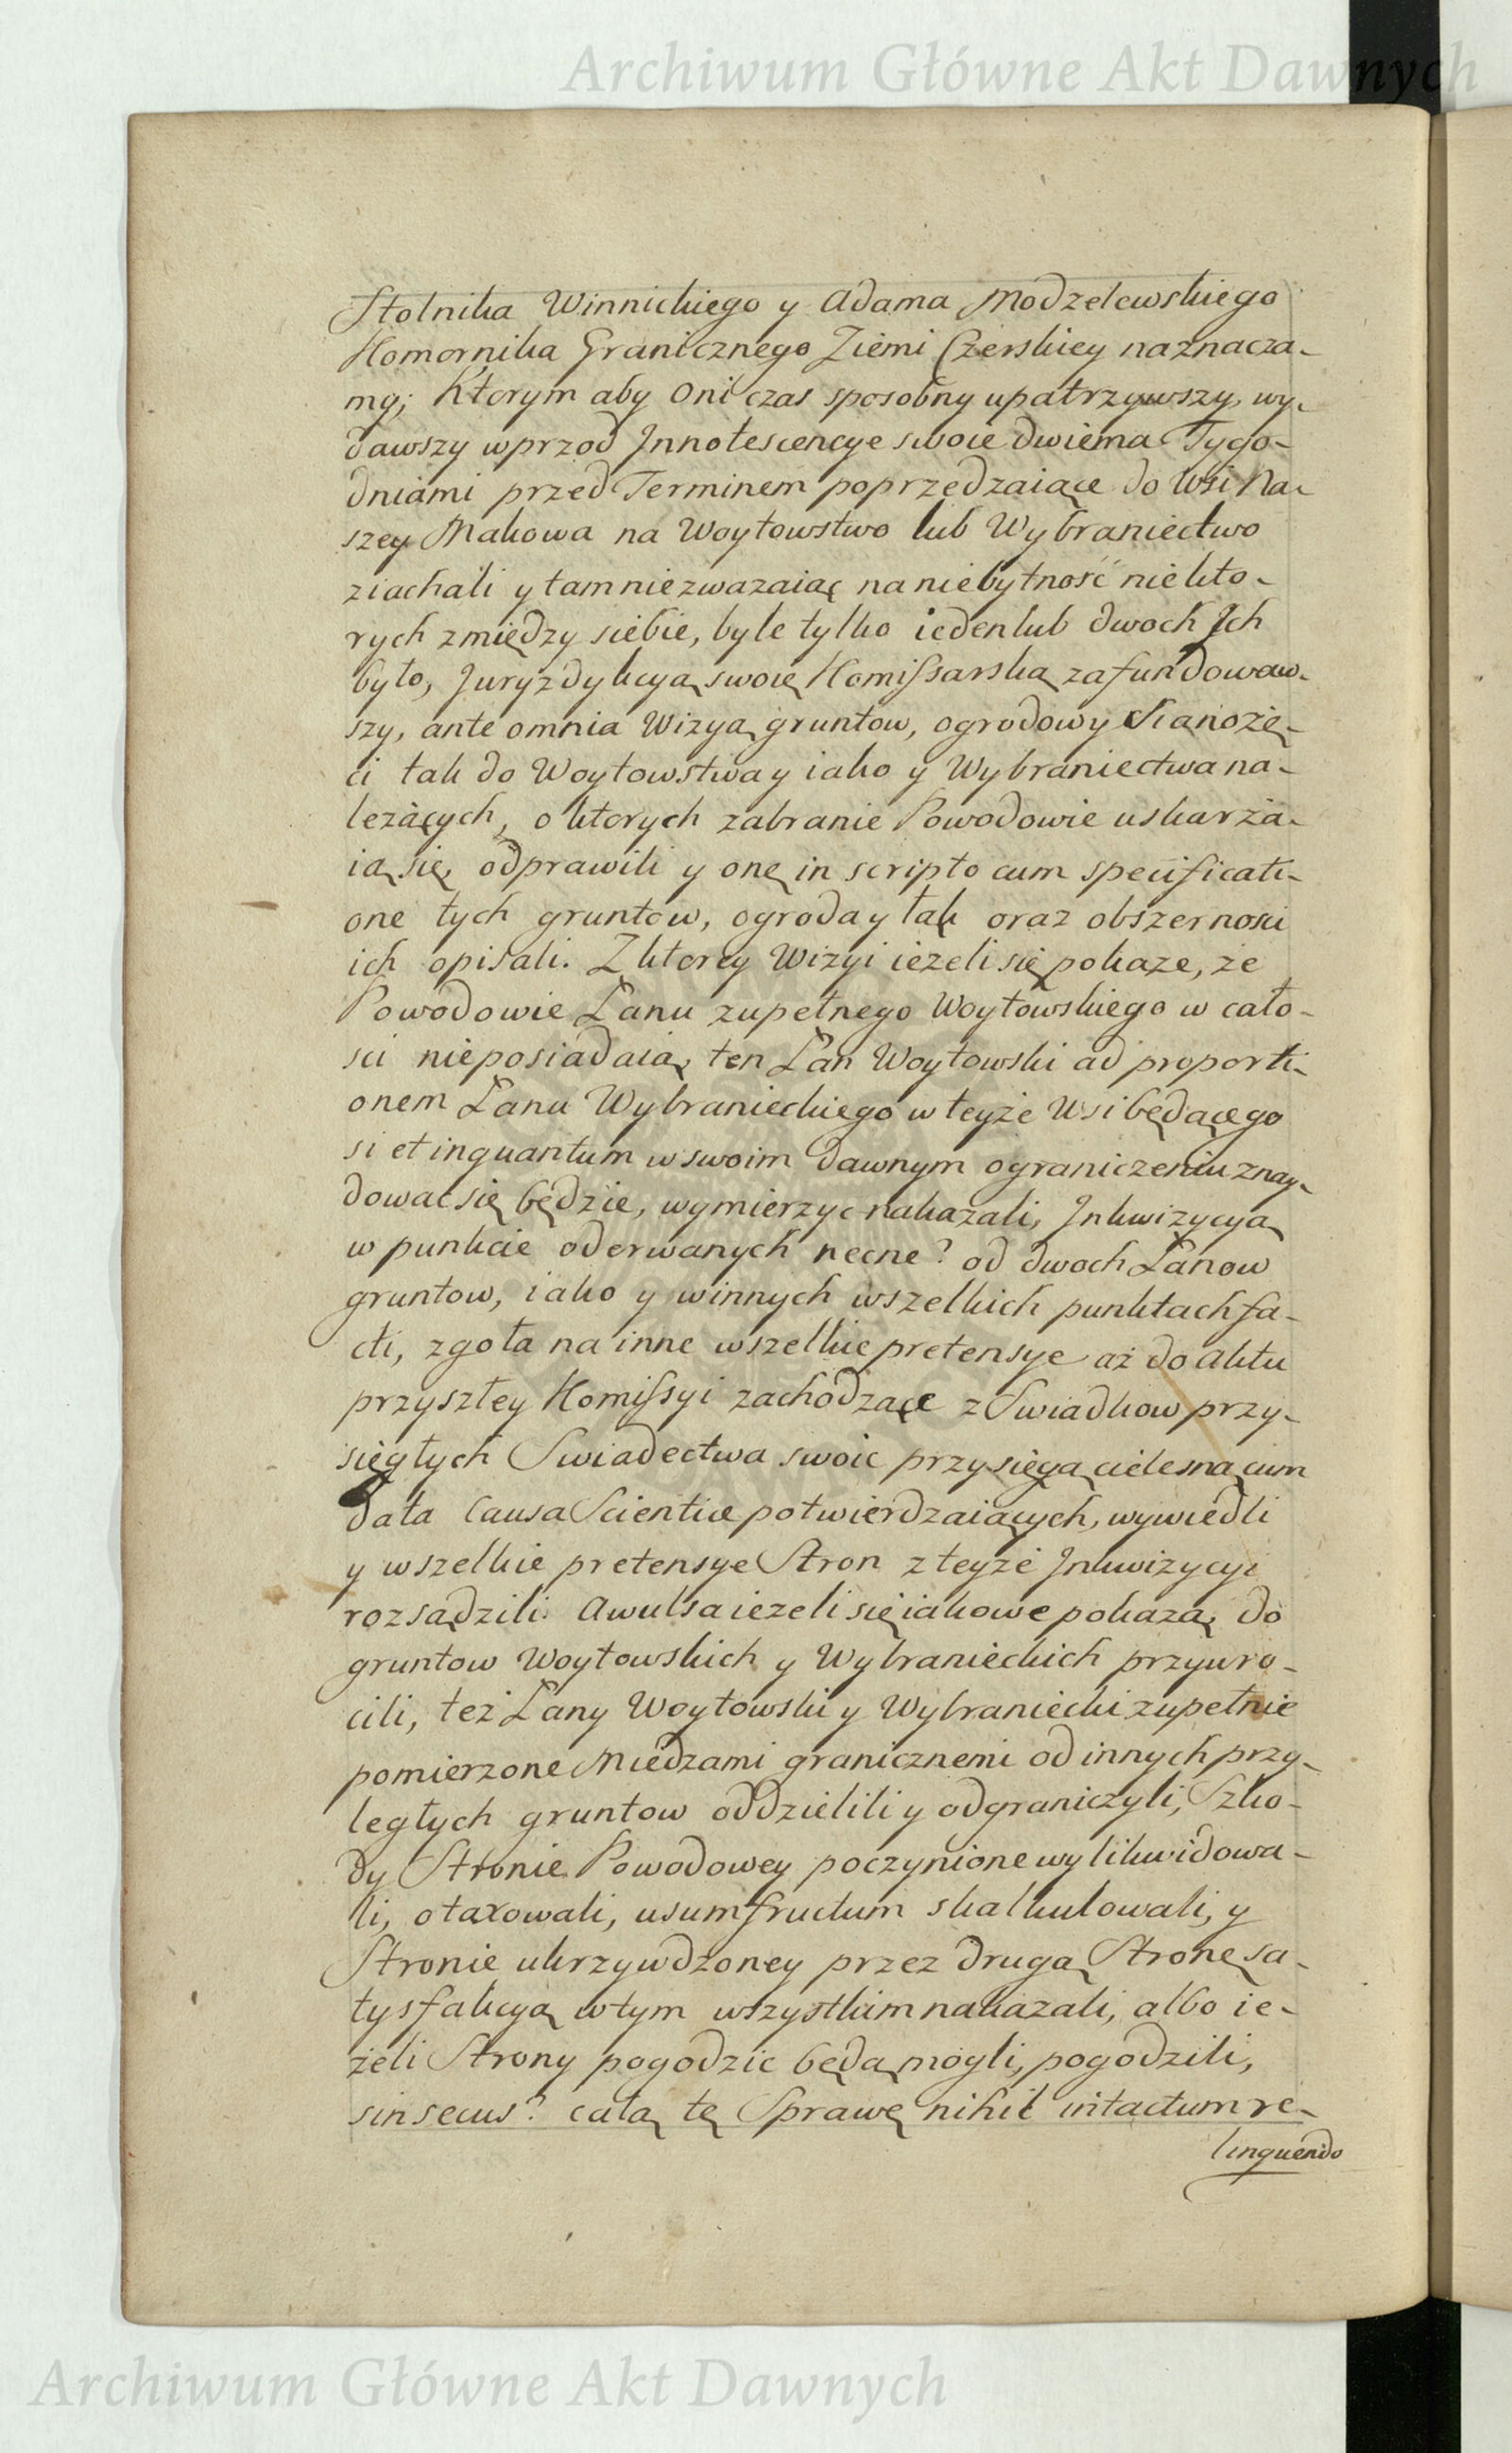 Archiwum Główne Akt Dawnych
Stolnika Winnickiego y Adama Modzelewskiego
Komornika Granicznego Ziemi Czerskiey naznacza-
my; Ktorym aby Oni czas sposobny upatrzywszy, wy-
dawszy wprzod Jnnotescencye swoie dwiema Tygo-
dniami przed Terminem poprzedzaiące do Wsi Na-
szey Makowa na Woytowstwo lub Wybraniectwo
ziachali y tam niezwazaiąc na niebytność niekto-
rych zmiędzy siebie, byle tylko ieden lub dwoch Jch
było, Juryzdykcyą swoię Komissarską zafundowaw-
szy, ante omnia Wizyą gruntow, ogrodow y Sianożę-
ci tak do Woytowstwa y iako y Wybraniectwa na-
leżących, o ktorych zabranie Powodowie uskarża-
ią się, odprawili y onę in scripto cum specificati-
one tych gruntow, ogroda y łąk oraz obszernosci
ich opisali. Z ktorey Wizyi ieżeli się pokaże, że
Powodowie Łanu zupełnego Woytowskiego w cało-
sci nieposiadaią, ten Łan Woytowski ad proporti-
onem Łanu Wybranieckiego w teyże Wsi będącego
si et inquantum w swoim dawnym ograniczeniu znay-
dowac się będzie, wymierzyc nakazali, Jnkwizycyą
w punkcie oderwanych necne? od dwoch Łanow
gruntow, iako y w innych wszelkich punktach fa-
cti, zgoła na inne wszelkie pretensye aż do Aktu
przyszłey Komissyi zachodzące z Swiadkow przy-
sięgłych Swiadectwa swoie przysięgą cielesną cum
data Causa Scientiæ potwierdzaiących, wywiedli
y wszelkie pretensye Stron z teyże Jnkwizycyi
rozsądzili. Awulsa ieżeli się iakowe pokażą, do
gruntow Woytowskich y Wybranieckich przywro-
cili, też Łany Woytowski y Wybraniecki zupełnie
pomierzone Miedzami granicznemi od innych przy-
ległych gruntow oddzielili y odgraniczyli, Szko-
dy Stronie Powodowey poczynione wylikwidowa-
li, otaxowali, usumfructum skalkulowali, y
Stronie ukrzywdzoney przez drugą Stronę sa-
tysfakcyą w tym wszystkim nakazali, albo ie-
żeli Strony pogodzic będą mogli, pogodzili,
sin secus? całą tę Sprawę nihil intactum re-
linquendo
Archiwum Główne Akt Dawnych